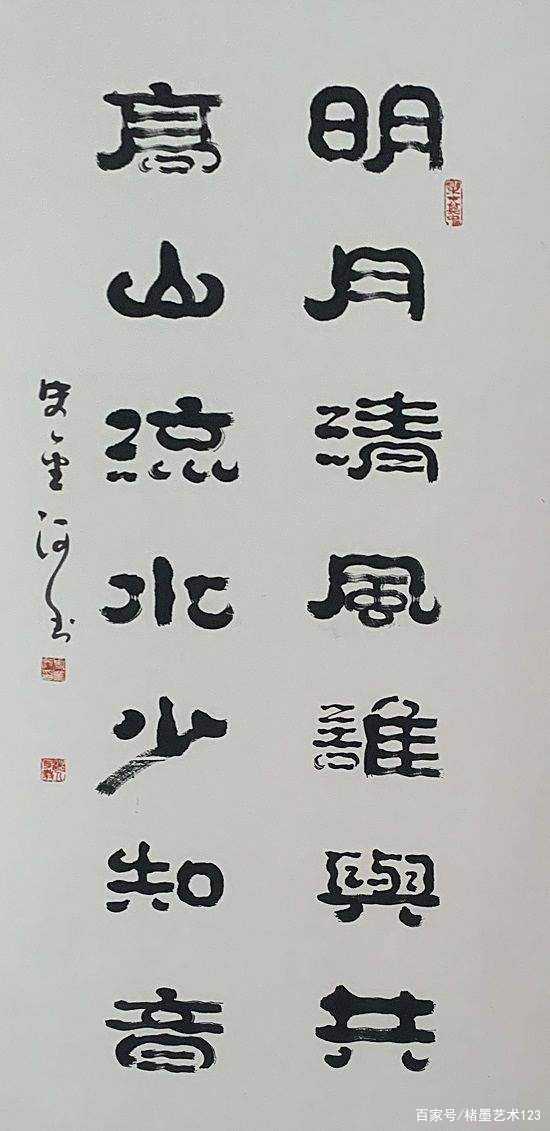 明月清風誰與共
高山流水少知音
百家号/楮墨艺术123